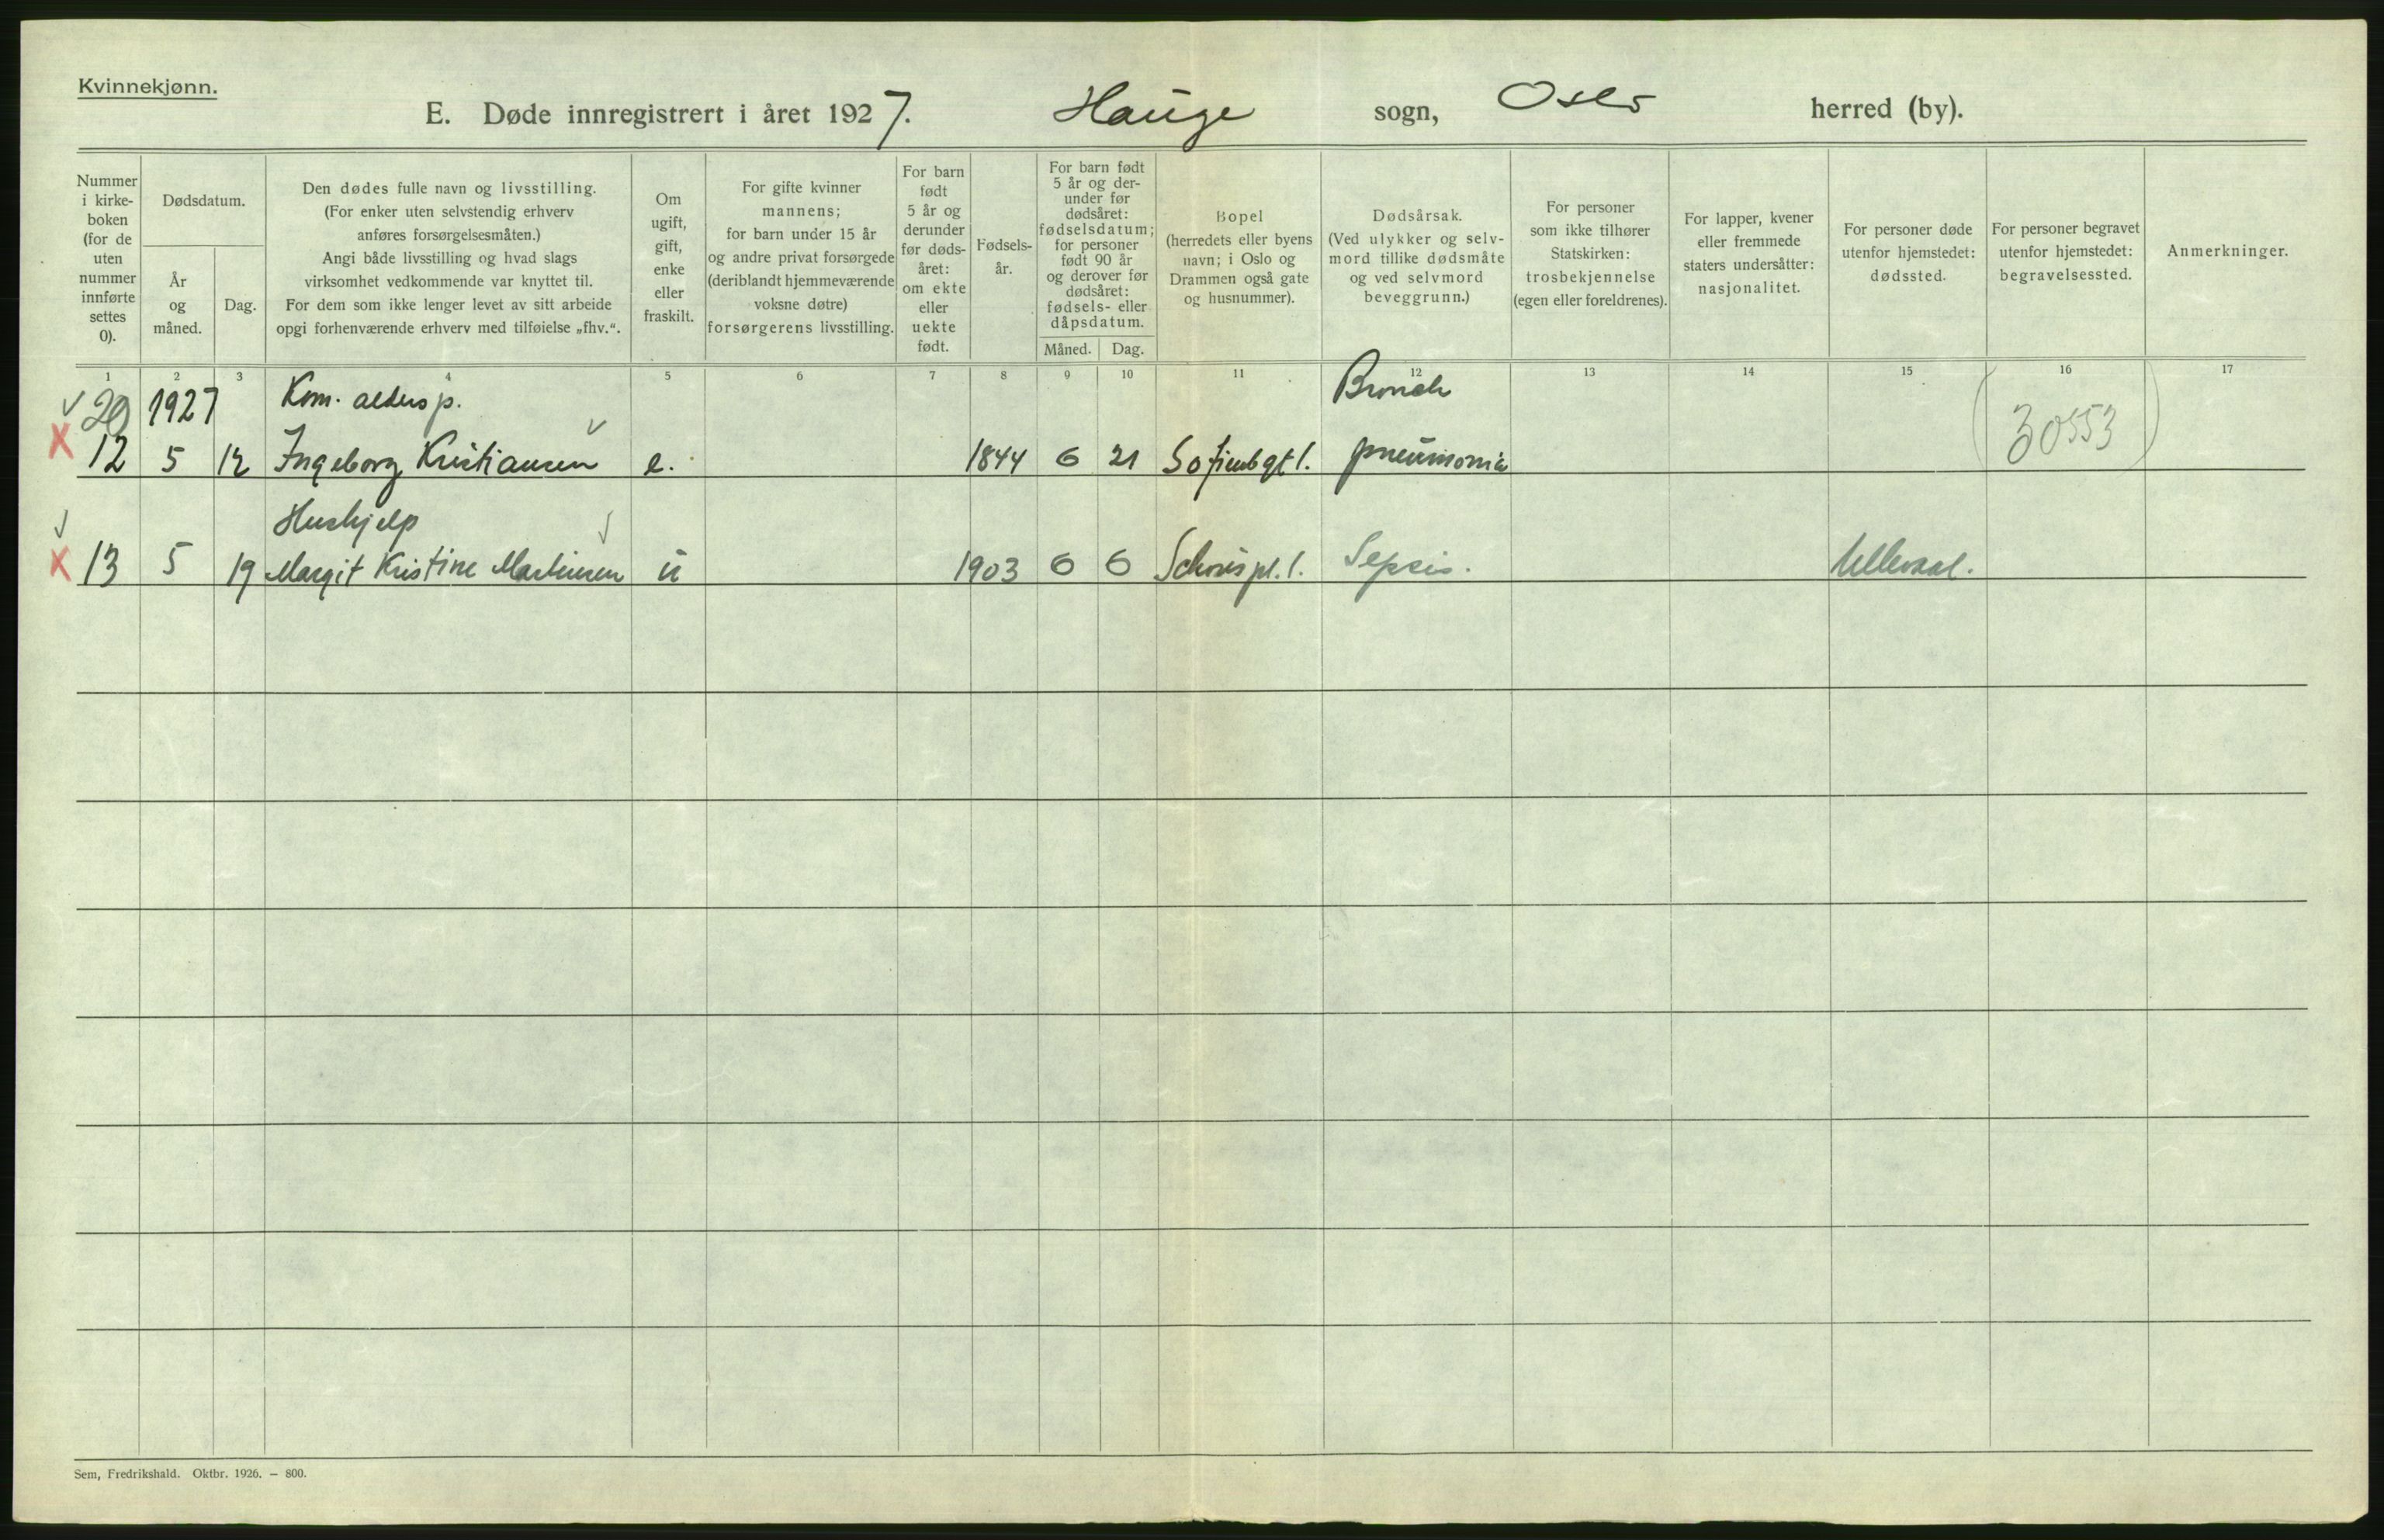 Kvinnekjønn.
E. Døde innregistrert i året 1927. Hauge sogn, Oslo herred (by).
Nummer i kirke-boken (for de uten nummer innførte settes 0).
Dødsdatum.
År og måned.
Dag.
Den dødes fulle navn og livsstilling.
(For enker uten selvstendig erhverv
anføres forsørgelsesmåten.)
Angi både livsstilling og hvad slags
virksomhet vedkommende var knyttet til.
For dem som ikke lenger levet av sitt arbeide
opgi forhenværende erhverv med tilføielse „fhv.“.
Om ugift, gift, enke eller fraskilt.
For gifte kvinner
mannens;
for barn under 15 år
og andre privat forsørgede
(deriblandt hjemmeværende
voksne døtre)
forsørgerens livsstilling.
For barn født 5 år og derunder før døds-året: om ekte eller uekte født.
Fødsels-år.
For barn født
5 år og der-
under før
dødsåret:
fødselsdatum;
for personer
født 90 år
og derover før
dødsåret:
fødsels- eller
dåpsdatum.
Måned. Dag.
Bopel
(herredets eller byens
navn; i Oslo og
Drammen også gate
og husnummer).
Dødsårsak.
(Ved ulykker og selv-
mord tillike dødsmåte
og ved selvmord
beveggrunn.)
For personer
som ikke tilhører
Statskirken:
trosbekjennelse
(egen eller foreldrenes).
For lapper, kvener
eller fremmede
staters undersåtter:
nasjonalitet.
For personer døde
utenfor hjemstedet:
dødssted.
For personer begravet
utenfor hjemstedet:
begravelsessted.
Anmerkninger.
1 2 3 4 5 6 7 8 9 10 11 12 13 14 15 16 17
20 1927 Kom. alders p. Bronch
12 5 12 Ingeborg Kristiansen e. 1844 6 21 Sofienbgt 1. pneumonia (30553)
Hushjelp
13 5 19 Margit Kristine Martinsen u 1903 6 6 Schouspl. 1. Sepsis. Ullevaal.
Sem, Fredrikshald. Oktbr. 1926. — 800.